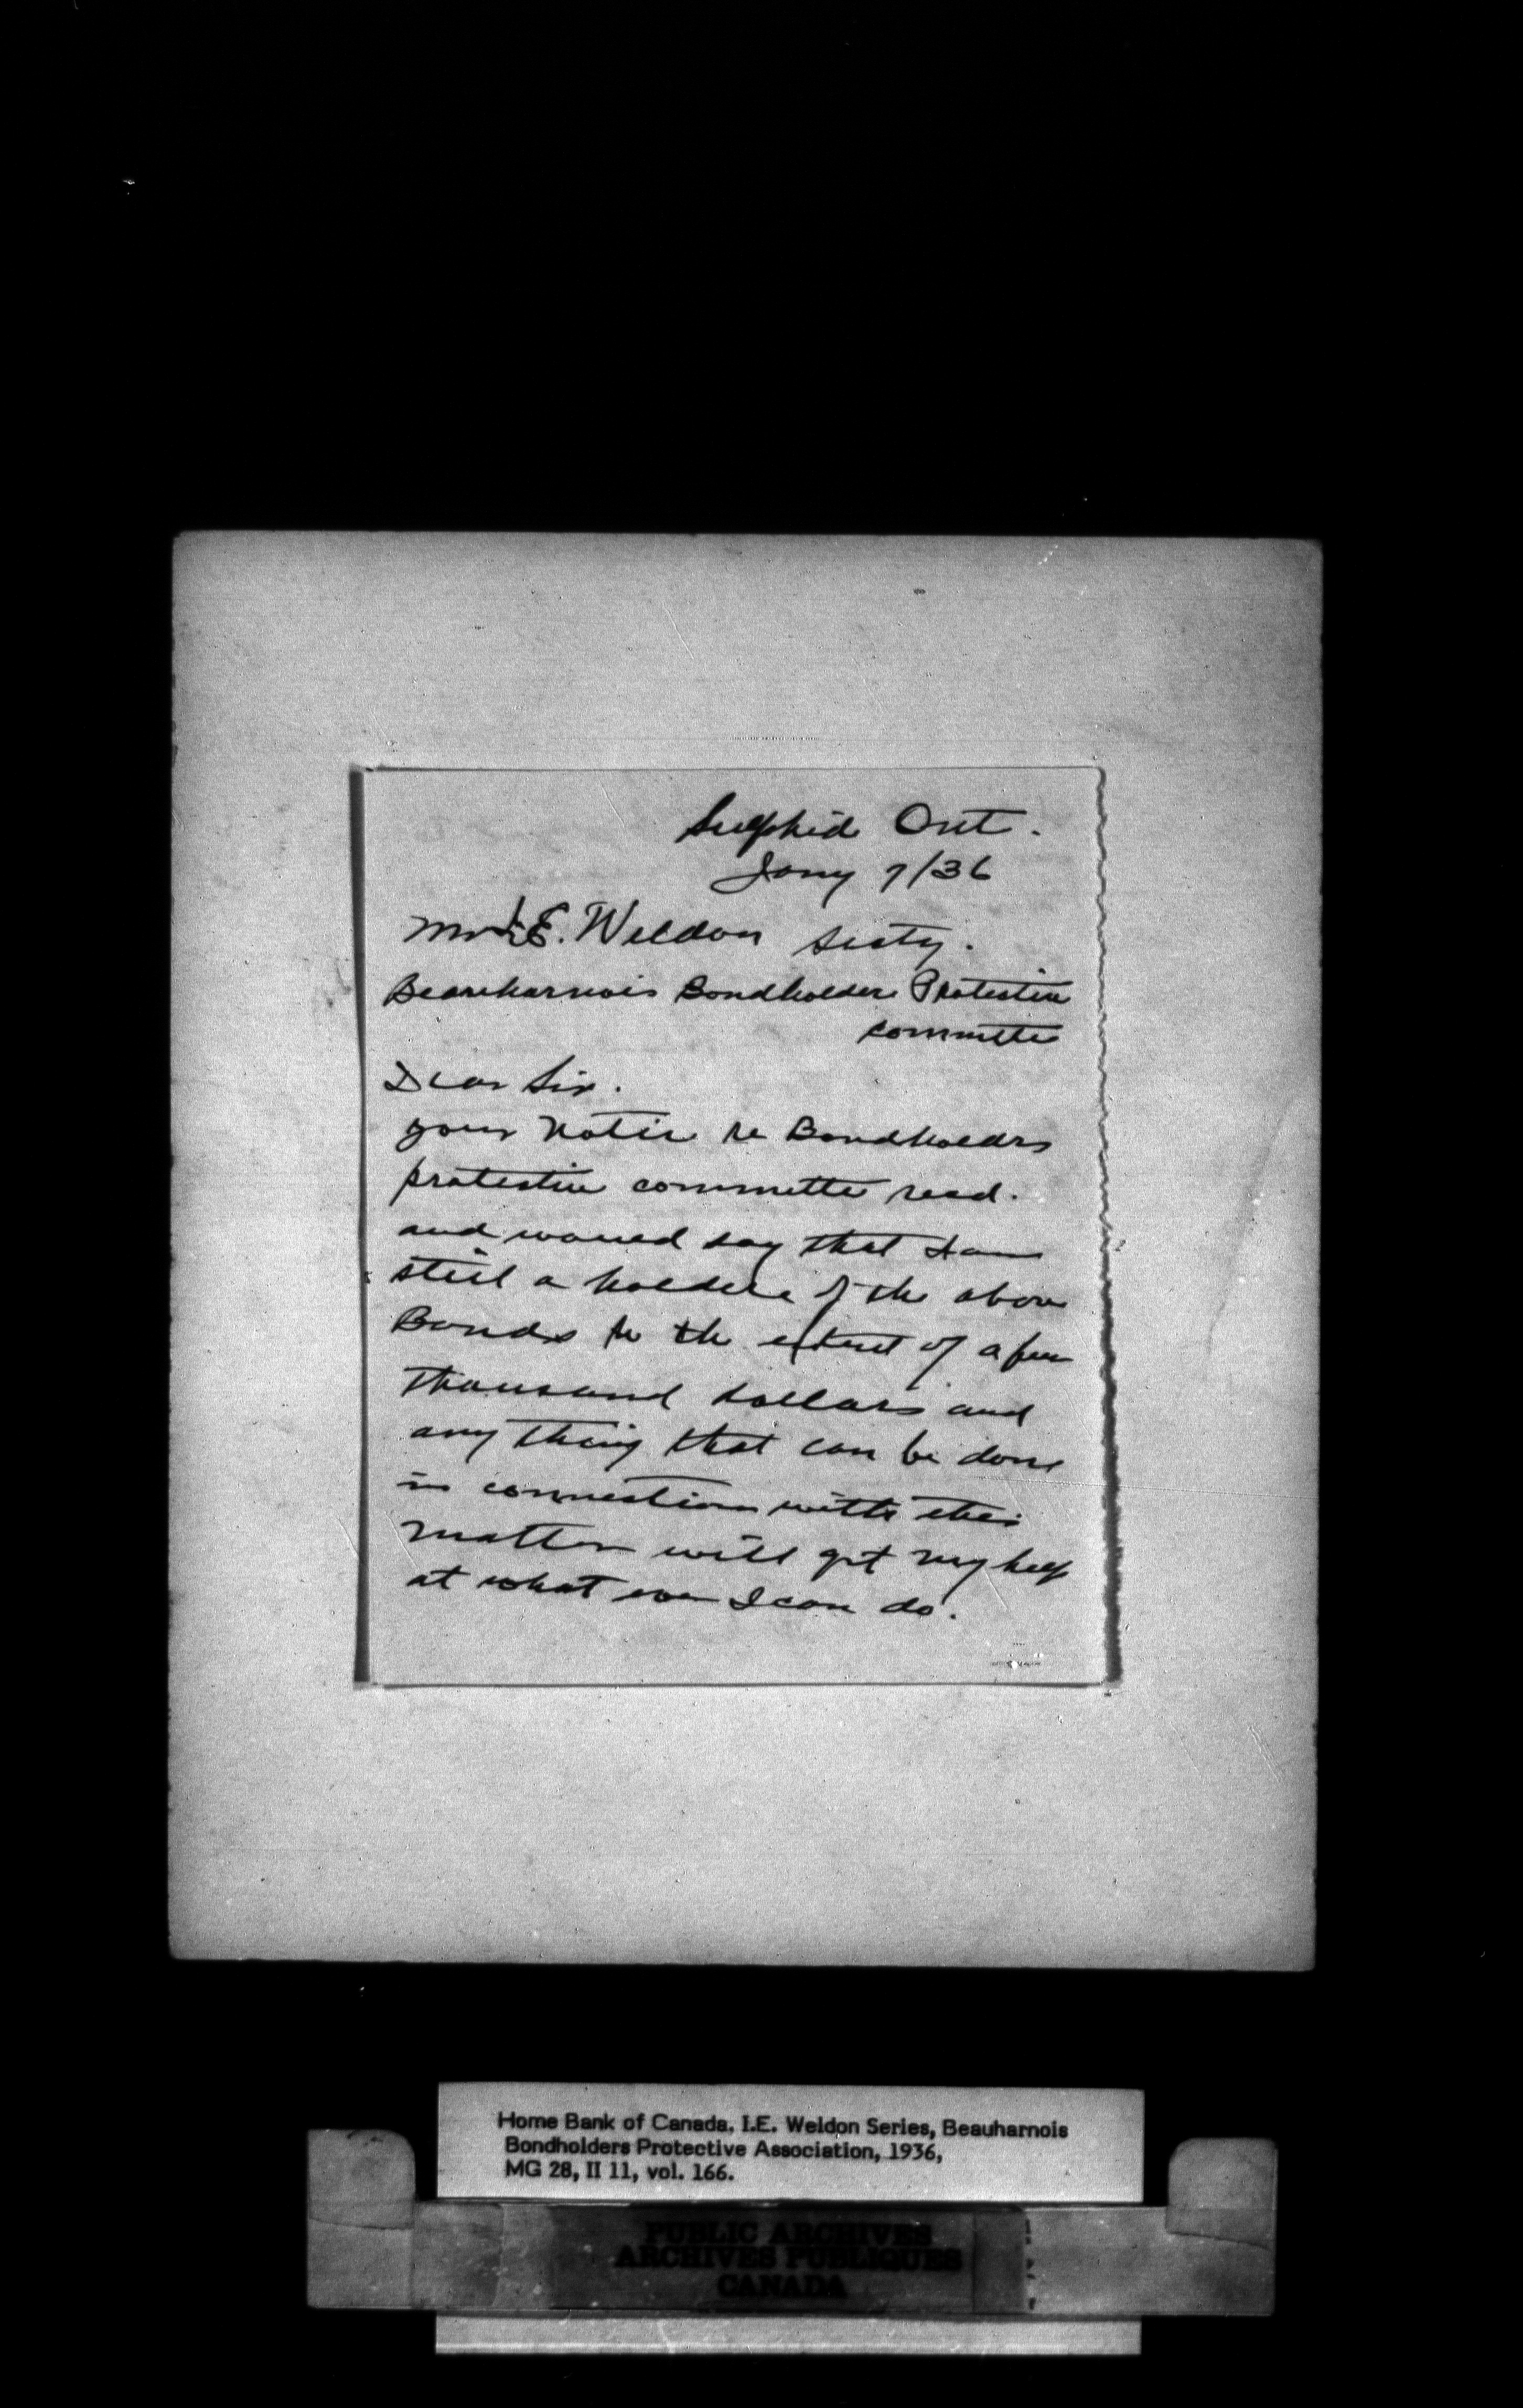 Sulphid Ont.
Jany 7/36
Mr I.E. Weldon Secty.
Beauharnois Bondholders Protective
committe
Dear Sir.
your Notice re Bondholders
protective committe recd.
and would say that I am
still a holder of the above
Bonds to the extent of a few
thousand dollars and
any thing that can be done
in connection with this
matter will get my help
at what ever I can do.
Home Bank of Canada, I.E. Weldon Series, Beauharnois
Bondholders Protective Association, 1936,
MG 28, II 11, vol. 166.
PUBLIC ARCHIVES
ARCHIVES PUBLIQUES
CANADA